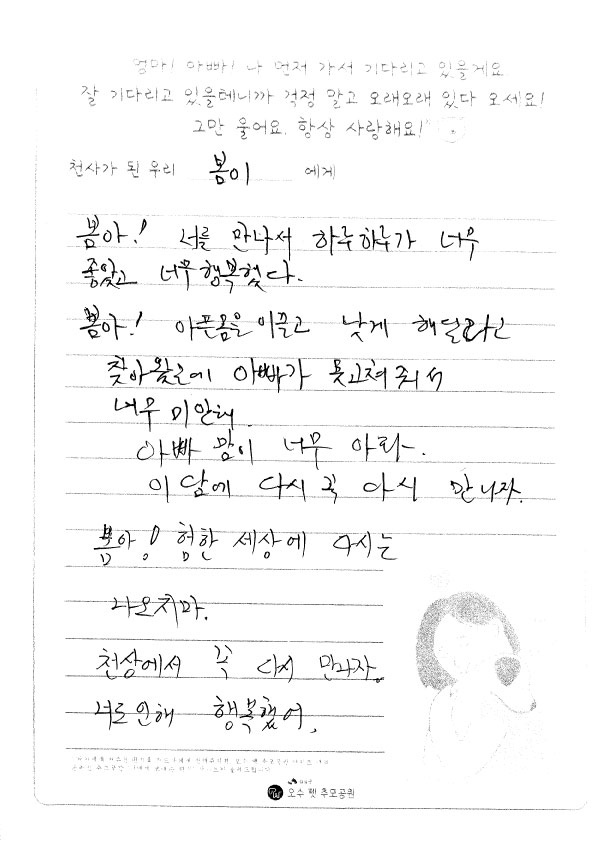 엄마! 아빠! 나 먼저 가서 기다리고 있을게요
잘 기다리고 있을테니까 걱정 말고 오래오래 있다 오세요!
그만 울어요. 항상 사랑해요!
천사가 된 우리 봄이 에게
봄아! 너를 만나서 하루하루가 너무
좋았고 너무 행복했다.
봄아! 아픈몸을 이끌고 낫게 해달라고
찾아왔는데 아빠가 못고쳐줘서
너무 미안해.
아빠 맘이 너무 아파.
이 담에 다시 꼭 다시 만나자.
봄아! 험한 세상에 다시는
나오지마.
천상에서 꼭 다시 만나자.
너로인해 행복했어,
오수 펫 추모공원